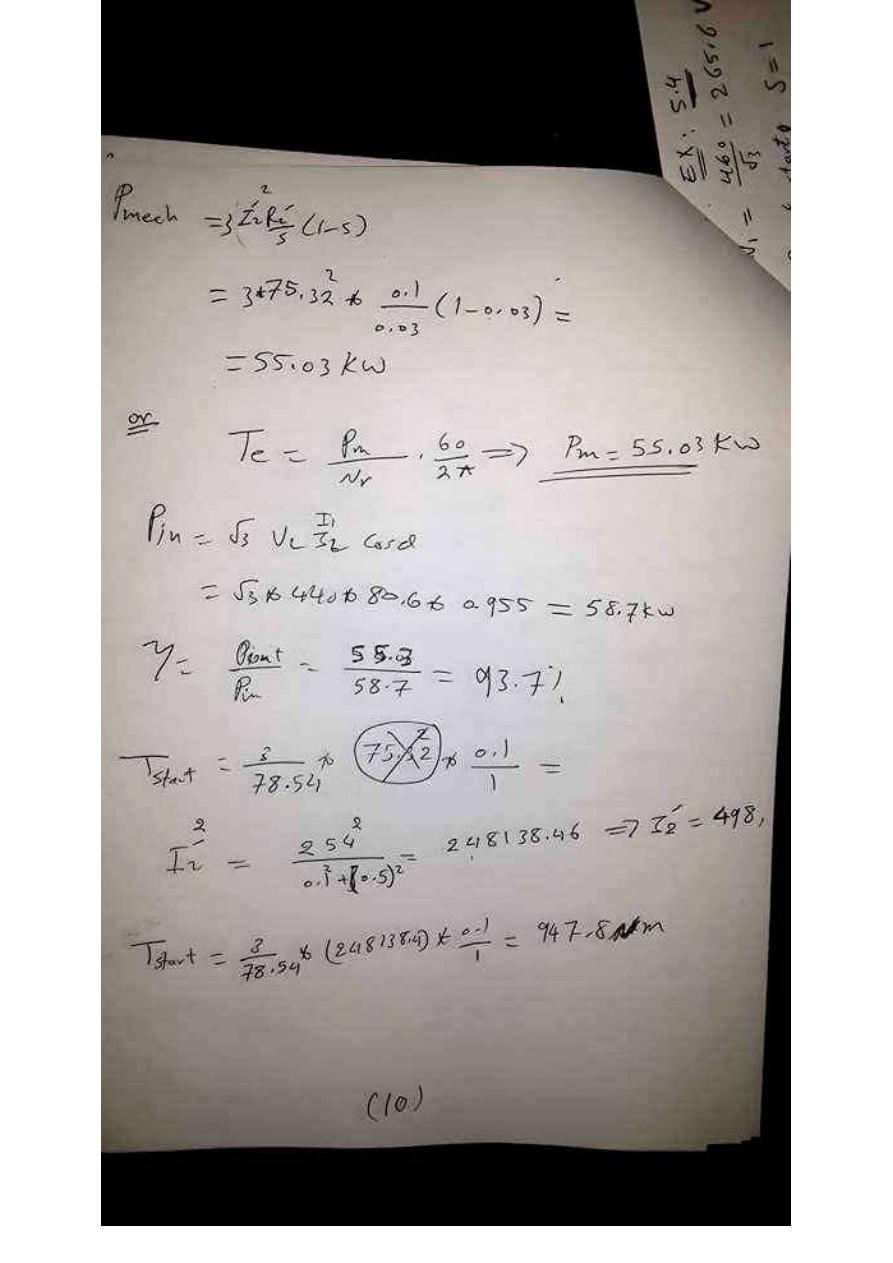 Pmech = 3 I₂'² R₂'/s (1-s)
= 3*75.32² * 0.1/0.03 (1-0.03) =
= 55.03 kw
or
Te = Pm/Nr . 60/2π => Pm = 55.03 kw
Pin = √3 VL I1 cosα
= √3 * 440 * 80.6 * 0.955 = 58.7kw
η = Pout/Pin = 55.03/58.7 = 93.7%
Tstart = 3/78.54 * 75.32² * 0.1/1 =
I₂'² = 254²/0.1²+(0.5)² = 248138.46 => I₂' = 498,
Tstart = 3/78.54 * (248138.4) * 0.1/1 = 947.8 Nm
(10)
EX: 5.4
V1 = 460/√3 = 265.6 V
S=1